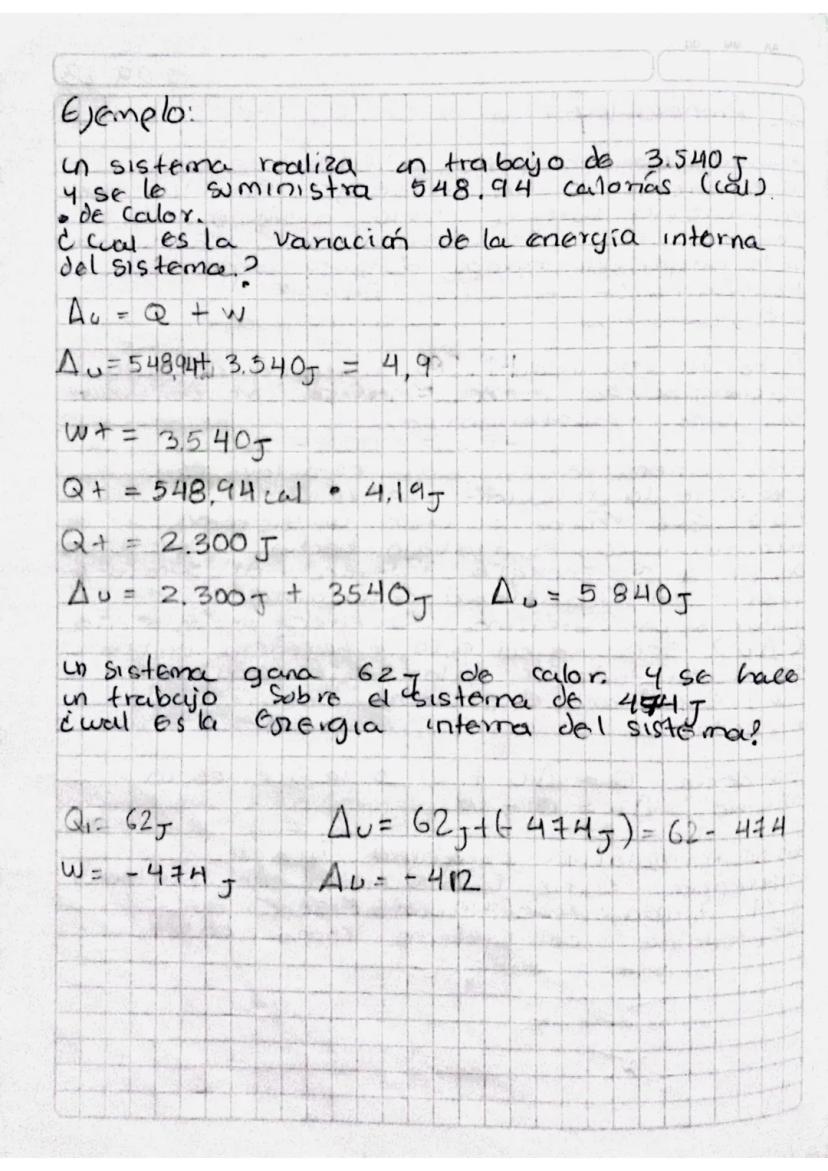 Ejemplo:
un sistema realiza un trabajo de 3.540 J
y se le suministra 548.94 calorías (cal)
• de calor.
¿cual es la variación de la energía interna
del sistema.?
Δu = Q + W
Δu = 548,94 + 3.540J = 4,9
W+ = 3.540J
Q+ = 548,94 cal • 4,19J
Q+ = 2.300 J
Δu = 2.300J + 3540J Δu = 5 840J
un sistema gana 62 J de calor. y se hace
un trabajo sobre el sistema de 474 J
¿cual es la energia interna del sistema?
Q1= 62J Δu = 62J + (- 474J) = 62 - 474
W = -474 J Δu = - 412